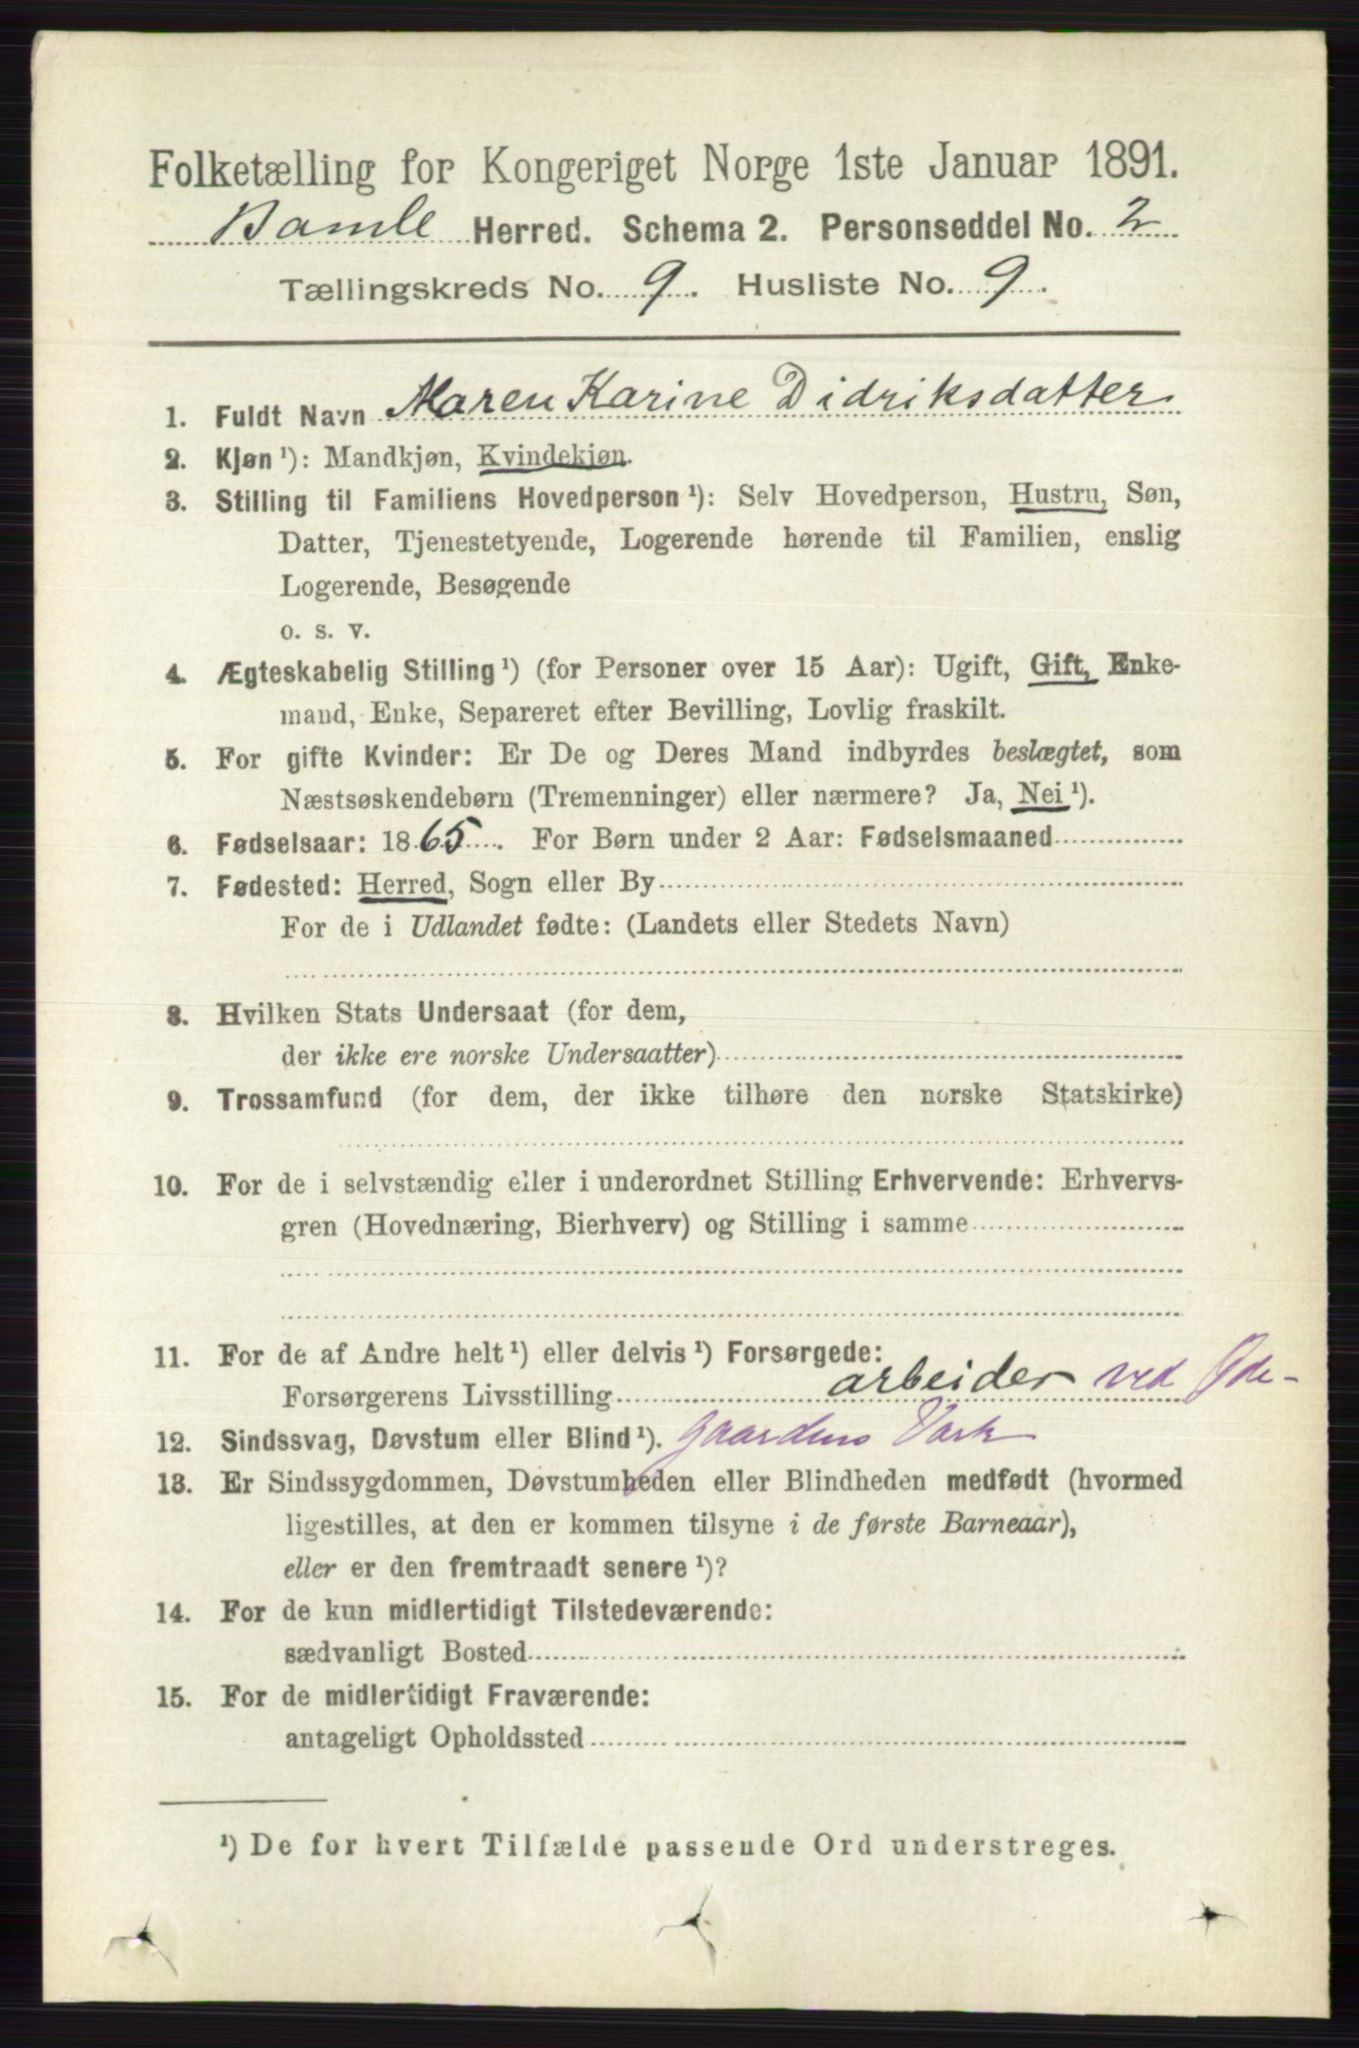 Folketælling for Kongeriget Norge 1ste Januar 1891.
Bamle Herred. Schema 2. Personseddel No. 2
Tællingskreds No. 9. Husliste No. 9.
1. Fuldt Navn Maren Karine Didriksdatter
2. Kjøn ¹): Mandkjøn, Kvindekjøn.
3. Stilling til Familiens Hovedperson ¹): Selv Hovedperson, Hustru, Søn,
Datter, Tjenestetyende, Logerende hørende til Familien, enslig
Logerende, Besøgende
o. s. v.
4. Ægteskabelig Stilling ¹) (for Personer over 15 Aar): Ugift, Gift, Enke-
mand, Enke, Separeret efter Bevilling, Lovlig fraskilt.
5. For gifte Kvinder: Er De og Deres Mand indbyrdes beslægtet, som
Næstsøskendebørn (Tremenninger) eller nærmere? Ja, Nei ¹).
6. Fødselsaar: 1865. For Børn under 2 Aar: Fødselsmaaned
7. Fødested: Herred, Sogn eller By
For de i Udlandet fødte: (Landets eller Stedets Navn)
8. Hvilken Stats Undersaat (for dem,
der ikke ere norske Undersaatter)
9. Trossamfund (for dem, der ikke tilhøre den norske Statskirke)
10. For de i selvstændig eller i underordnet Stilling Erhvervende: Erhvervs-
gren (Hovednæring, Bierhverv) og Stilling i samme
11. For de af Andre helt ¹) eller delvis ¹) Forsørgede:
Forsørgerens Livsstilling arbeider ved Øde-
12. Sindssvag, Døvstum eller Blind ¹). gaardens Værk
13. Er Sindssygdommen, Døvstumheden eller Blindheden medfødt (hvormed
ligestilles, at den er kommen tilsyne i de første Barneaar),
eller er den fremtraadt senere ¹)?
14. For de kun midlertidigt Tilstedeværende:
sædvanligt Bosted
15. For de midlertidigt Fraværende:
antageligt Opholdssted
¹) De for hvert Tilfælde passende Ord understreges.